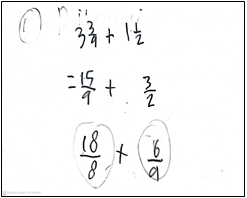 1 3 3/9 + 1 1/2
= 15/9 + 3/2
18/8 + 6/9